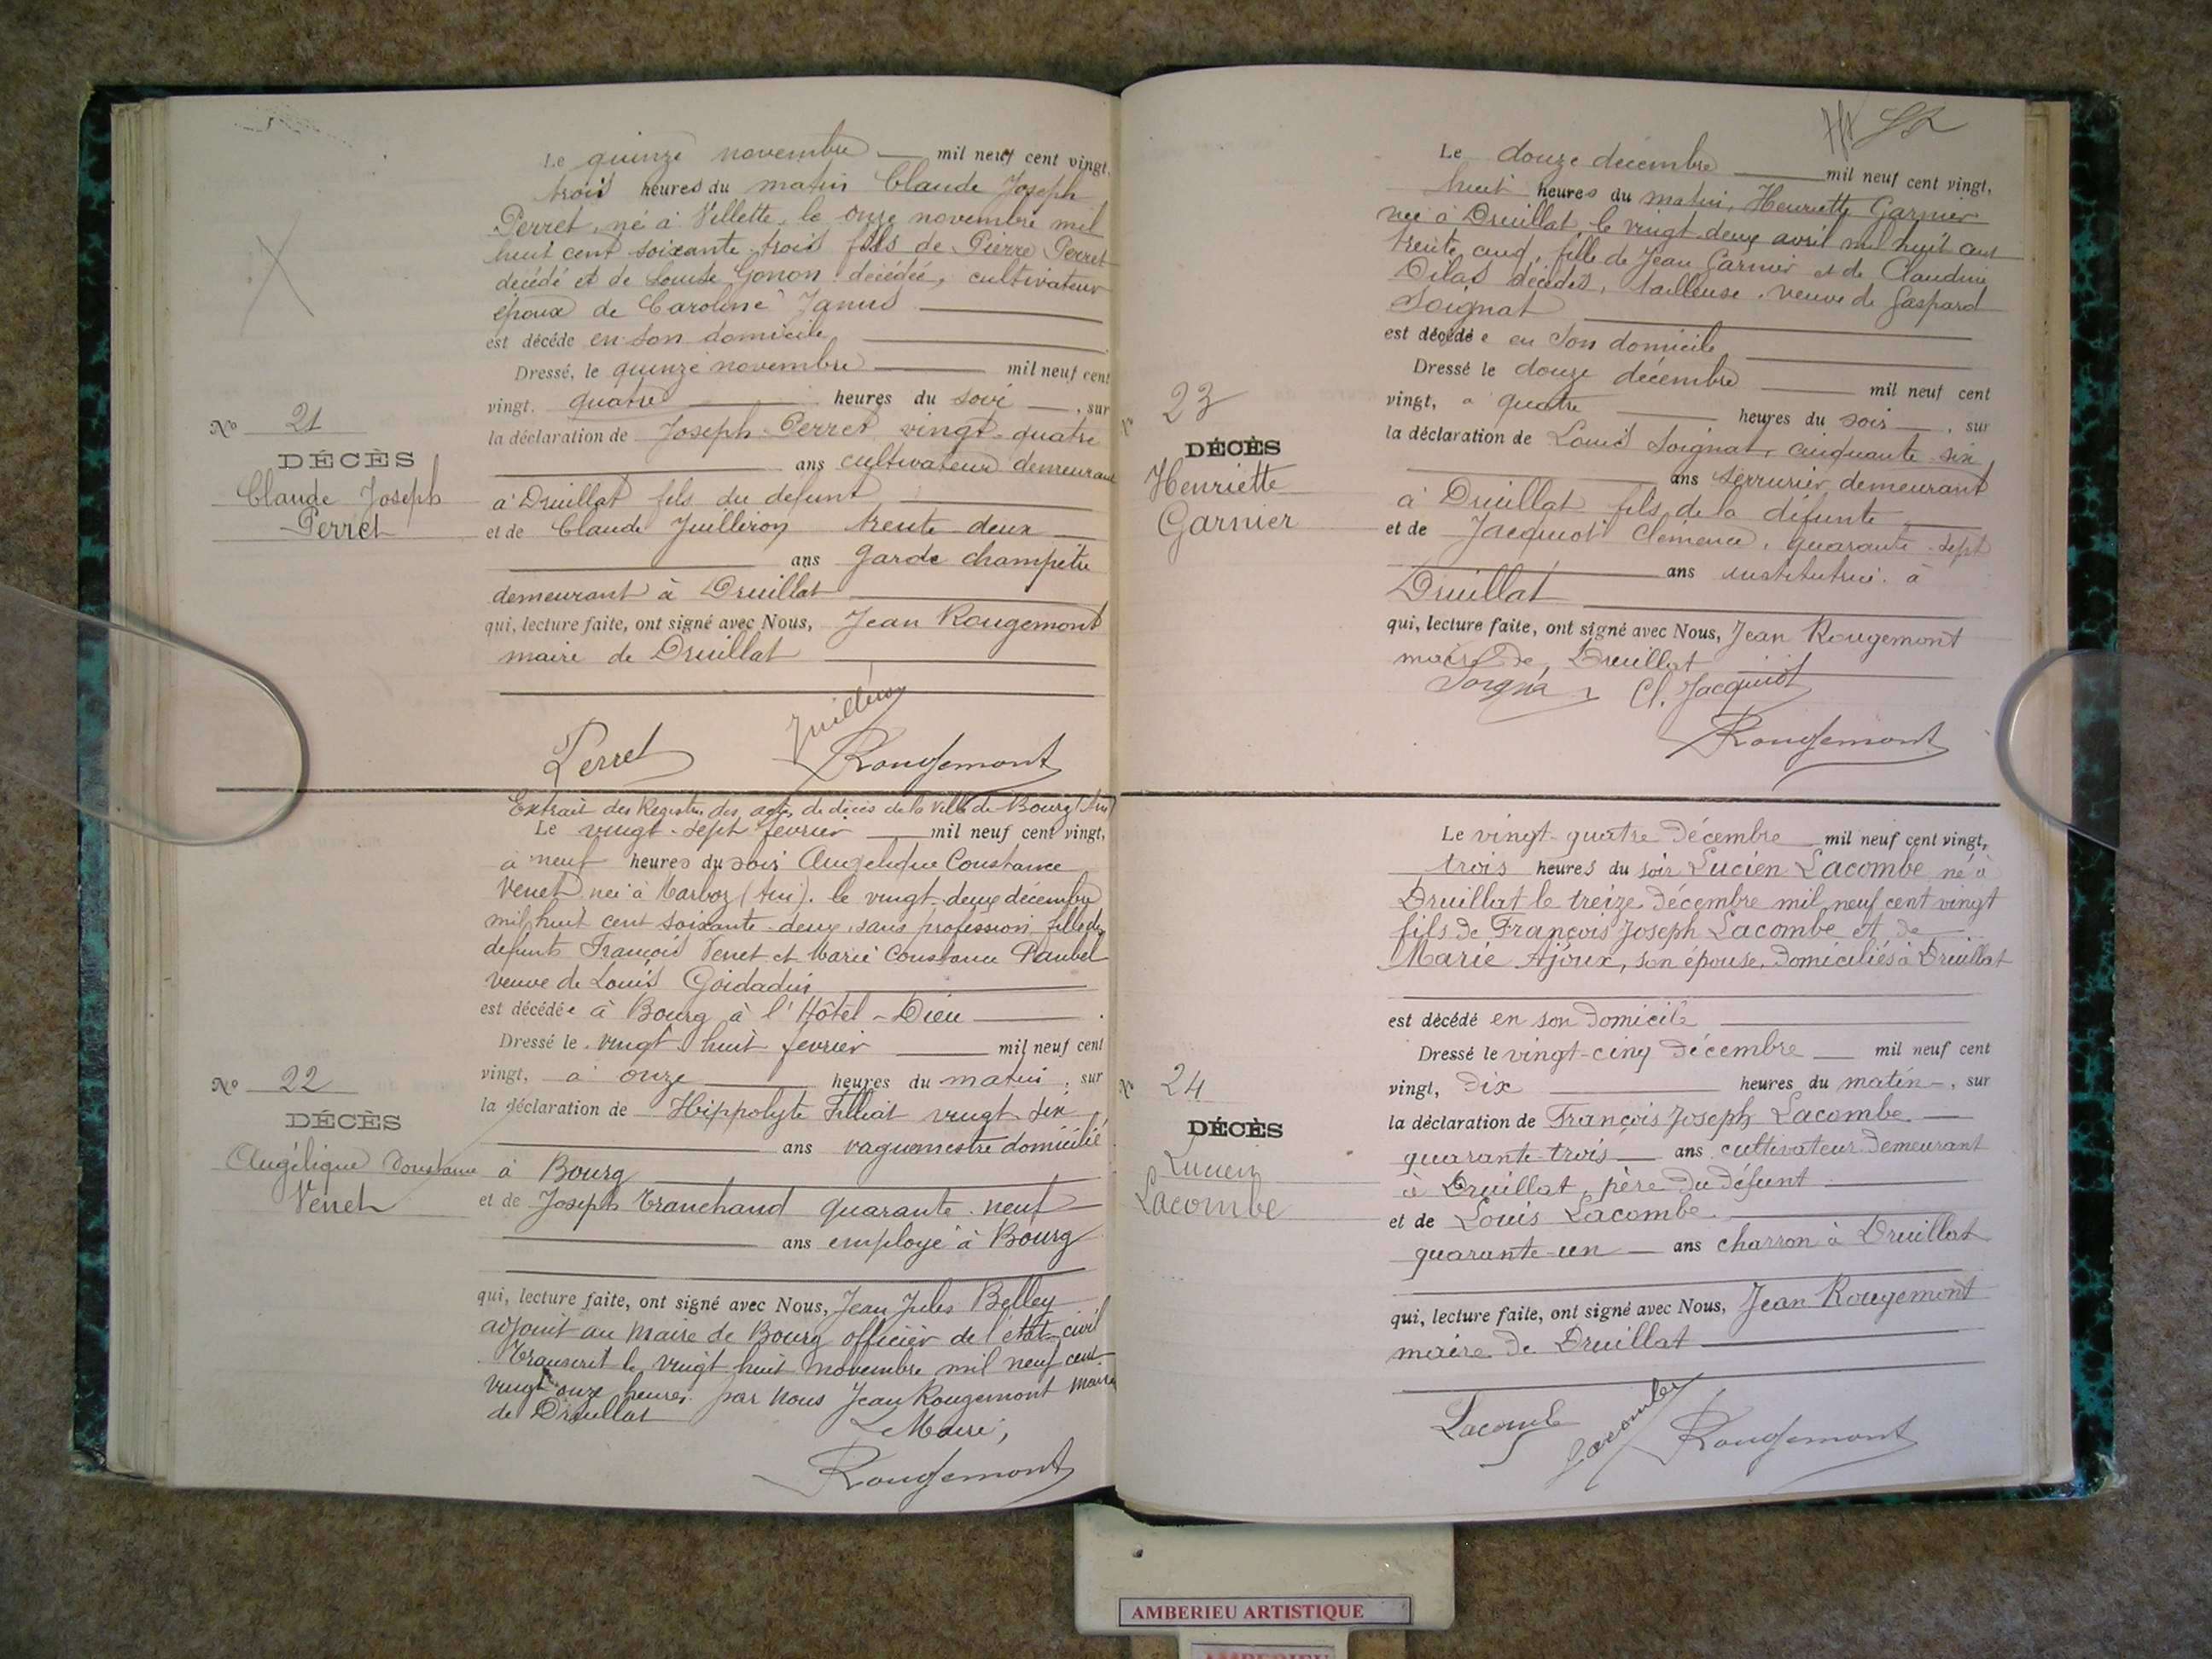 Le quinze novembre mil neuf cent vingt,
trois heures du matin Claude Joseph
Perret, né à Villette, le onze novembre mil
huit cent soixante-trois fils de Pierre Perret
décédé et de Louise Gonon décédée, cultivateur
époux de Caroline
est décédé en son domicile
Dressé, le quinze novembre mil neuf cent
vingt, quatre heures du soir, sur
la déclaration de Joseph Perret vingt-quatre
ans cultivateur demeurant
à Druillat fils du défunt
et de Claude Juilleron trente deux
ans garde champêtre
demeurant à Druillat
qui, lecture faite, ont signé avec Nous, Jean Rougemont
maire de Druillat
No 21
DÉCÈS
Claude Joseph
Perret
Perret Juilleron Rougemont
Extrait des Registres des actes de décès de la Ville de Bourg (Ain)
Le vingt-sept fevrier mil neuf cent vingt,
à neuf heures du soir Angelique Constance
Venet née à Marboz (Ain). le vingt-deux décembre
mil huit cent soixante-deux, sans profession fille des
défunts François Venet et Marie Constance Paubel
veuve de Louis
est décédée à Bourg à l'Hôtel-Dieu
Dressé le vingt huit fevrier mil neuf cent
vingt, à onze heures du matin, sur
la déclaration de Hippolyte Filliat vingt six
ans vaguemestre domicilié
à Bourg
et de Joseph Tranchand quarante-neuf
ans employé à Bourg
qui, lecture faite, ont signé avec Nous, Jean Jules Belley
adjoint au Maire de Bourg officier de l'état-civil
Transcrit le vingt huit novembre mil neuf cent
vingt onze heures par Nous Jean Rougemont maire
de Druillat
Le Maire,
Rougemont
No 22
DÉCÈS
Angélique Constance
Venet
52
Le douze décembre mil neuf cent vingt,
huit heures du matin, Henriette Garnier
née à Druillat, le vingt-deux avril mil huit cent
trente cinq, fille de Jean Garnier et de Claudine
Dilas décédés, tailleuse, veuve de Gaspard
Soignat
est décédée en son domicile
Dressé le douze décembre mil neuf cent
vingt, à quatre heures du soir, sur
la déclaration de Louis Soignat, cinquante-six
ans serrurier demeurant
à Druillat fils de la défunte
et de Jacquiot Clémence, quarante-sept
ans institutrice à
Druillat
qui, lecture faite, ont signé avec Nous, Jean Rougemont
maire de Druillat
Soignat Cl. Jacquiot
Rougemont
23
DÉCÈS
Henriette
Garnier
Le vingt-quatre décembre mil neuf cent vingt,
trois heures du soir Lucien Lacombe né à
Druillat le treize décembre mil neuf cent vingt
fils de François Joseph Lacombe et de
Marie Ajoux, son épouse, domiciliés à Druillat
est décédé en son domicile
Dressé le vingt-cinq décembre mil neuf cent
vingt, dix heures du matin, sur
la déclaration de François Joseph Lacombe
quarante-trois ans cultivateur demeurant
à Druillat, père du défunt
et de Louis Lacombe
quarante-un ans charron à Druillat
qui, lecture faite, ont signé avec Nous, Jean Rougemont
maire de Druillat
Lacombe Lacombe Rougemont
No 24
DÉCÈS
Lucien
Lacombe
AMBERIEU ARTISTIQUE
AMBERIEU